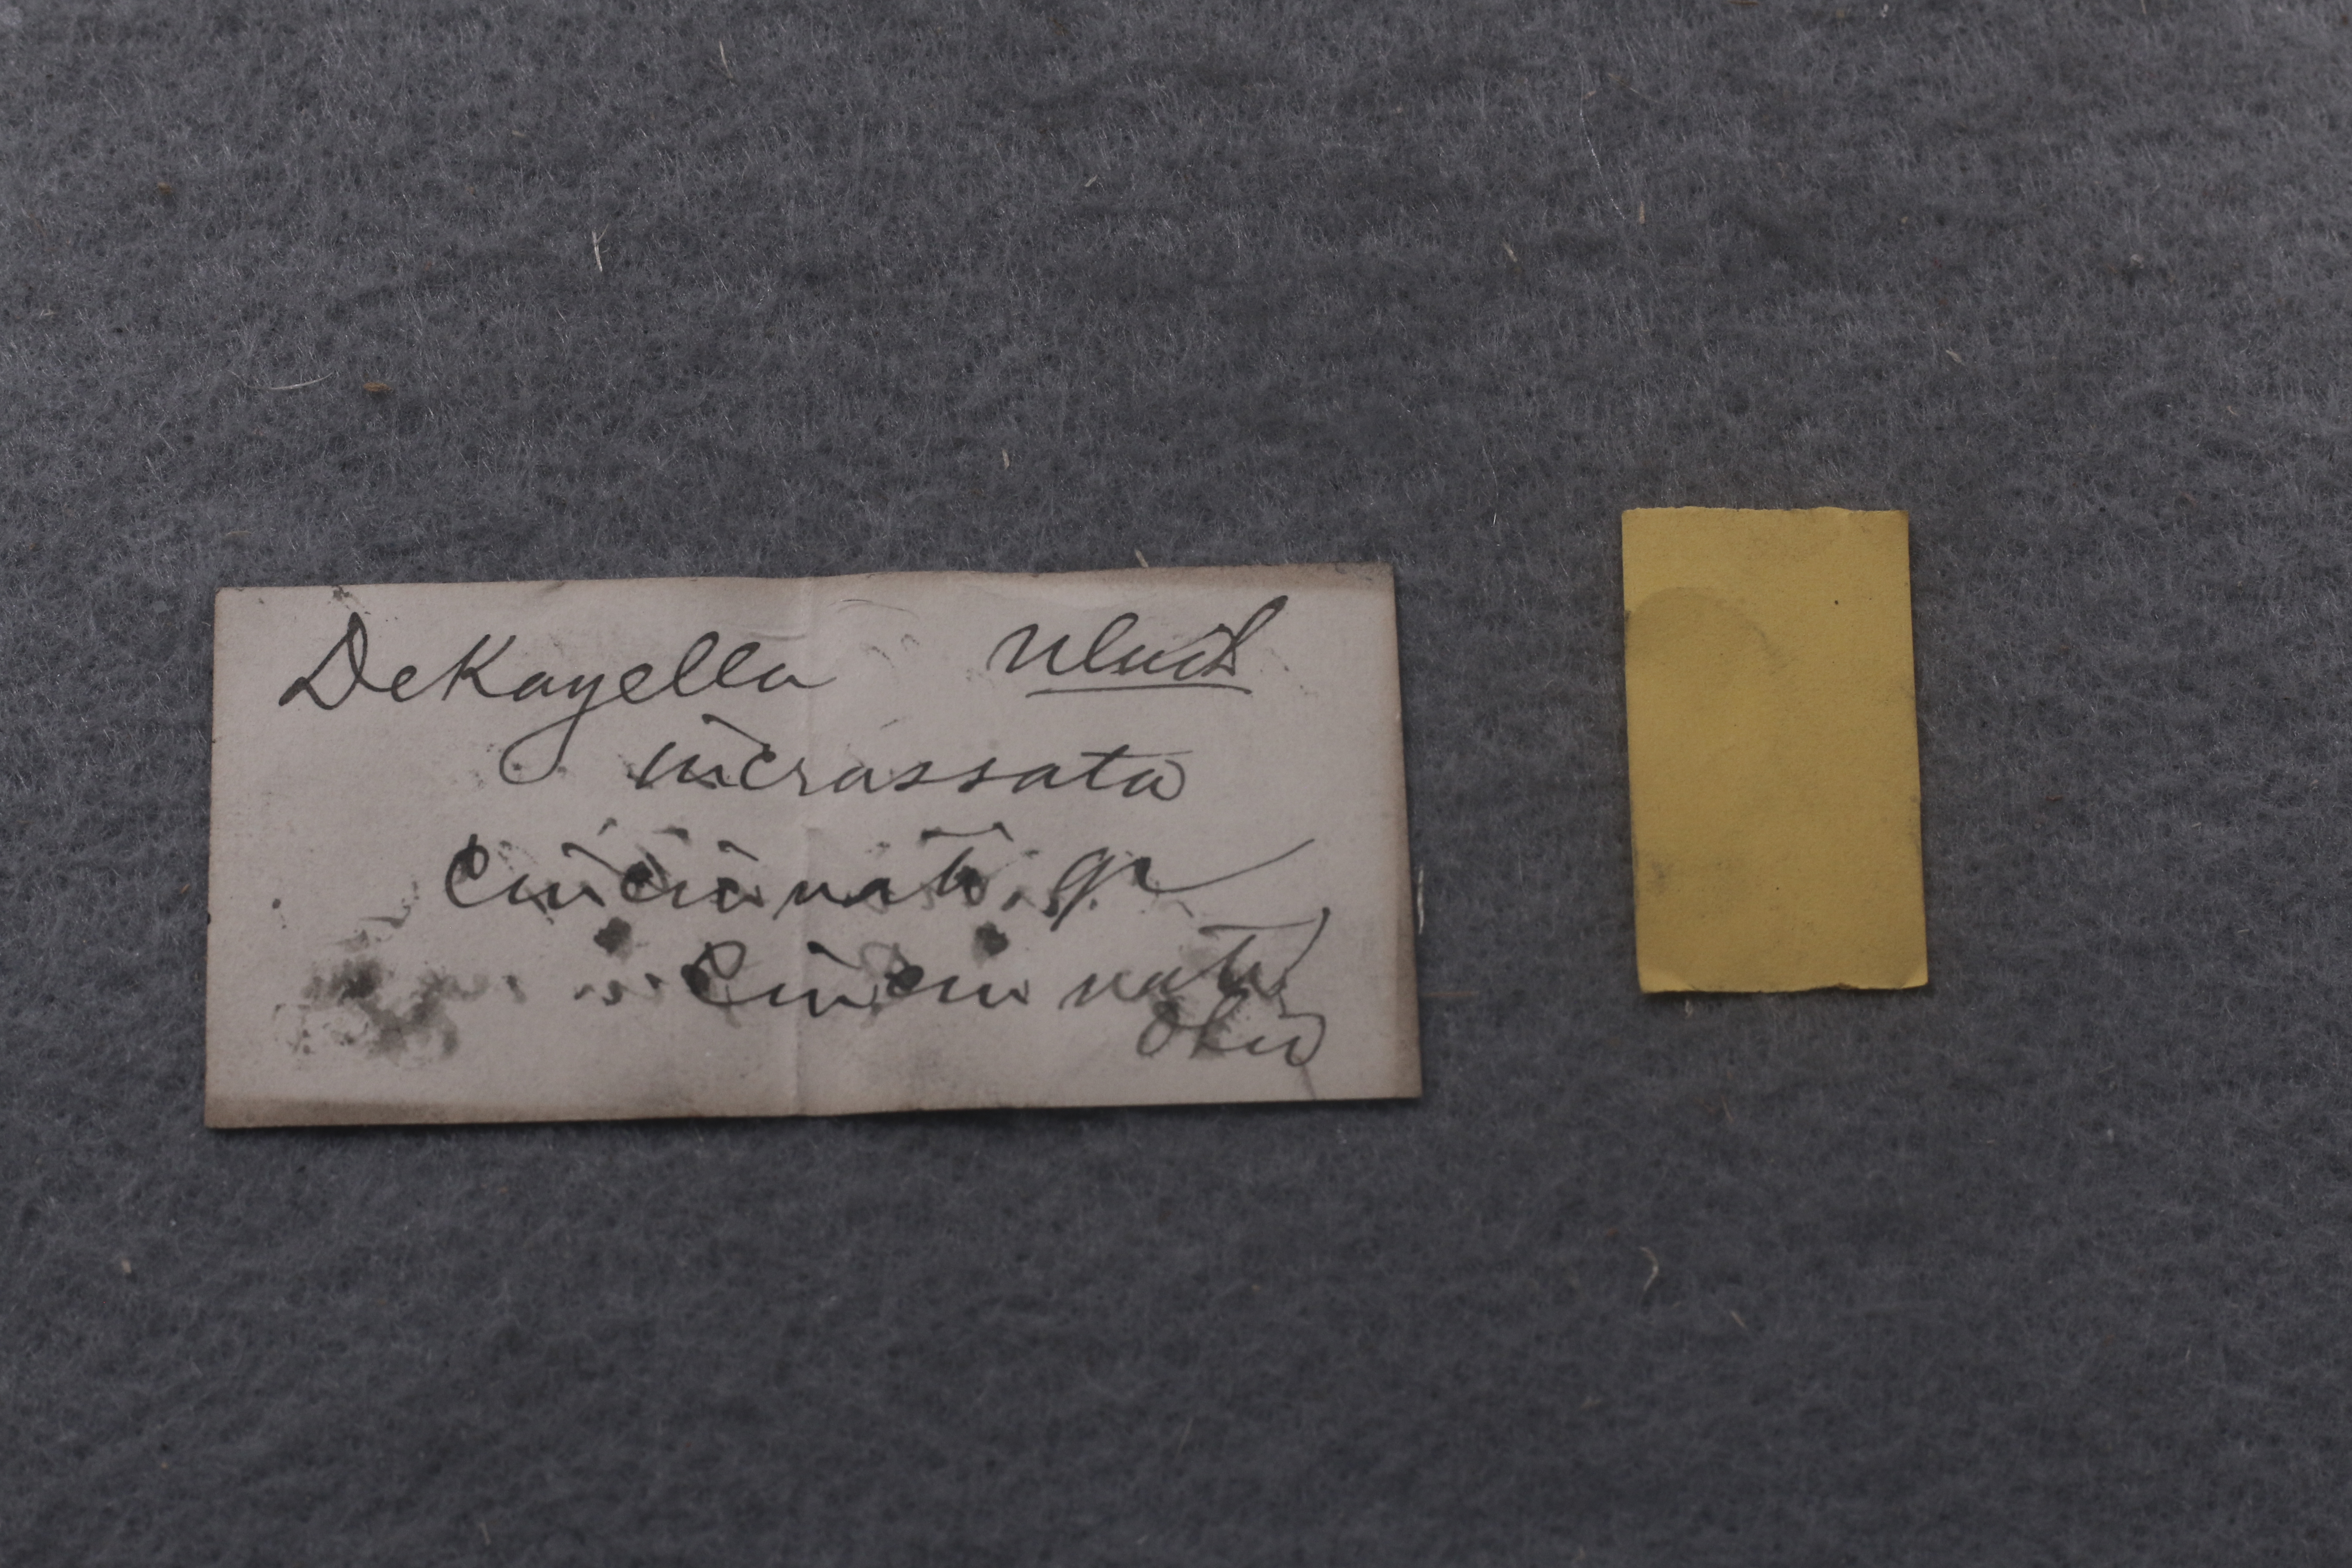 DeKayella Ulrich
incrassata
Cincinnati gr
Cincinnati
Ohio